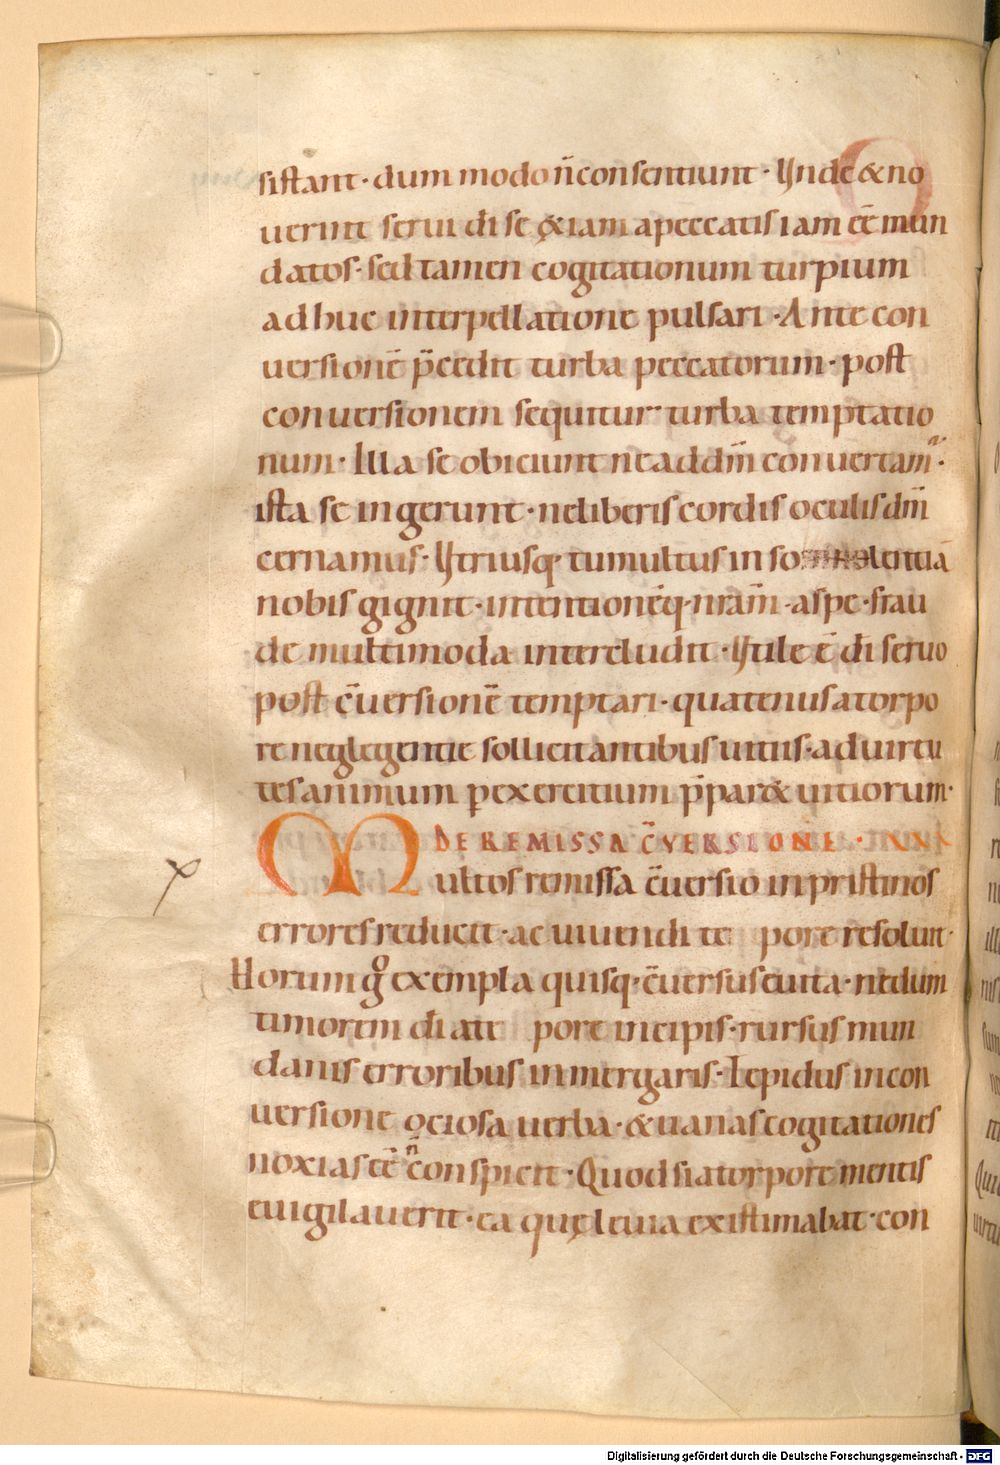 sistant · dum modo n̄ consentiunt · Unde & no
uerint serui dī se &iam a peccatis iam eē mun
datos · sed tamen cogitationum turpium
adhuc interpellatione pulsari · Ante con
uersionē p̄cedit turba peccatorum · post
conuersionem sequitur turba temptatio
num · Illa se obiciunt ne ad dm̄ conuertam̄ ·
ista se ingerunt · ne liberis cordis oculis dm̄
cernamus · Utriusq· tumultus in so lentiā
nobis gignit · intentionēq· nram̄ · aspe · frau
de multimoda intercludit · Utile ē dī seruo
post c̄uersionē temptari · quatenus a torpo
re neglegentie sollicitantibus uitiis · ad uirtu
tes animum p exercitium p̄par& uitiorum ·
DE REMISSA C̄VERSIONE ·
Multos remissa c̄uersio in pristinos
errores reducit · ac uiuendi te pore resoluit ·
Horum gͦ exempla quisq· c̄uersus euita · ne dum
timorem dī a te pore incipis · rursus mun
danis erroribus inmergaris · Tepidus in con
uersione ociosa uerba · & uanas cogitationes
noxias eē n̄ conspicit · Quod si a torpore mentis
euigilauerit · ea quę leuia existimabat · con
Digitalisierung gefördert durch die Deutsche Forschungsgemeinschaft - DFG